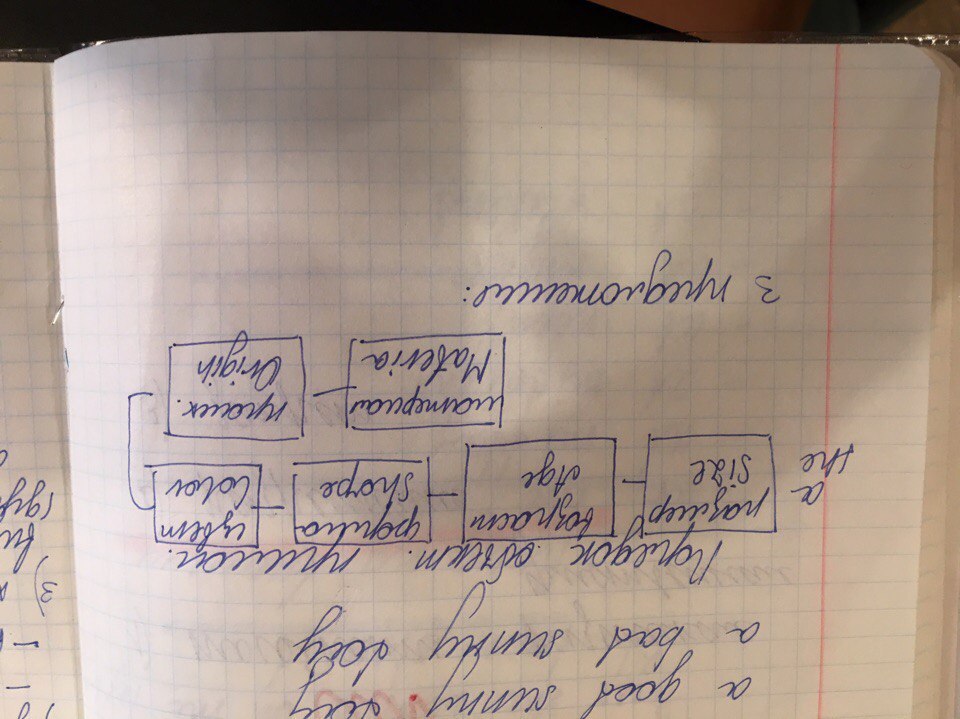 a good sunny day
a bad sunny day
Порядок объект. прилаг.
a
the
размер
Size
возраст
Age
форма
Shape
цвет
Color
происх.
Origin
материал
Materia
3 предложения:
3)